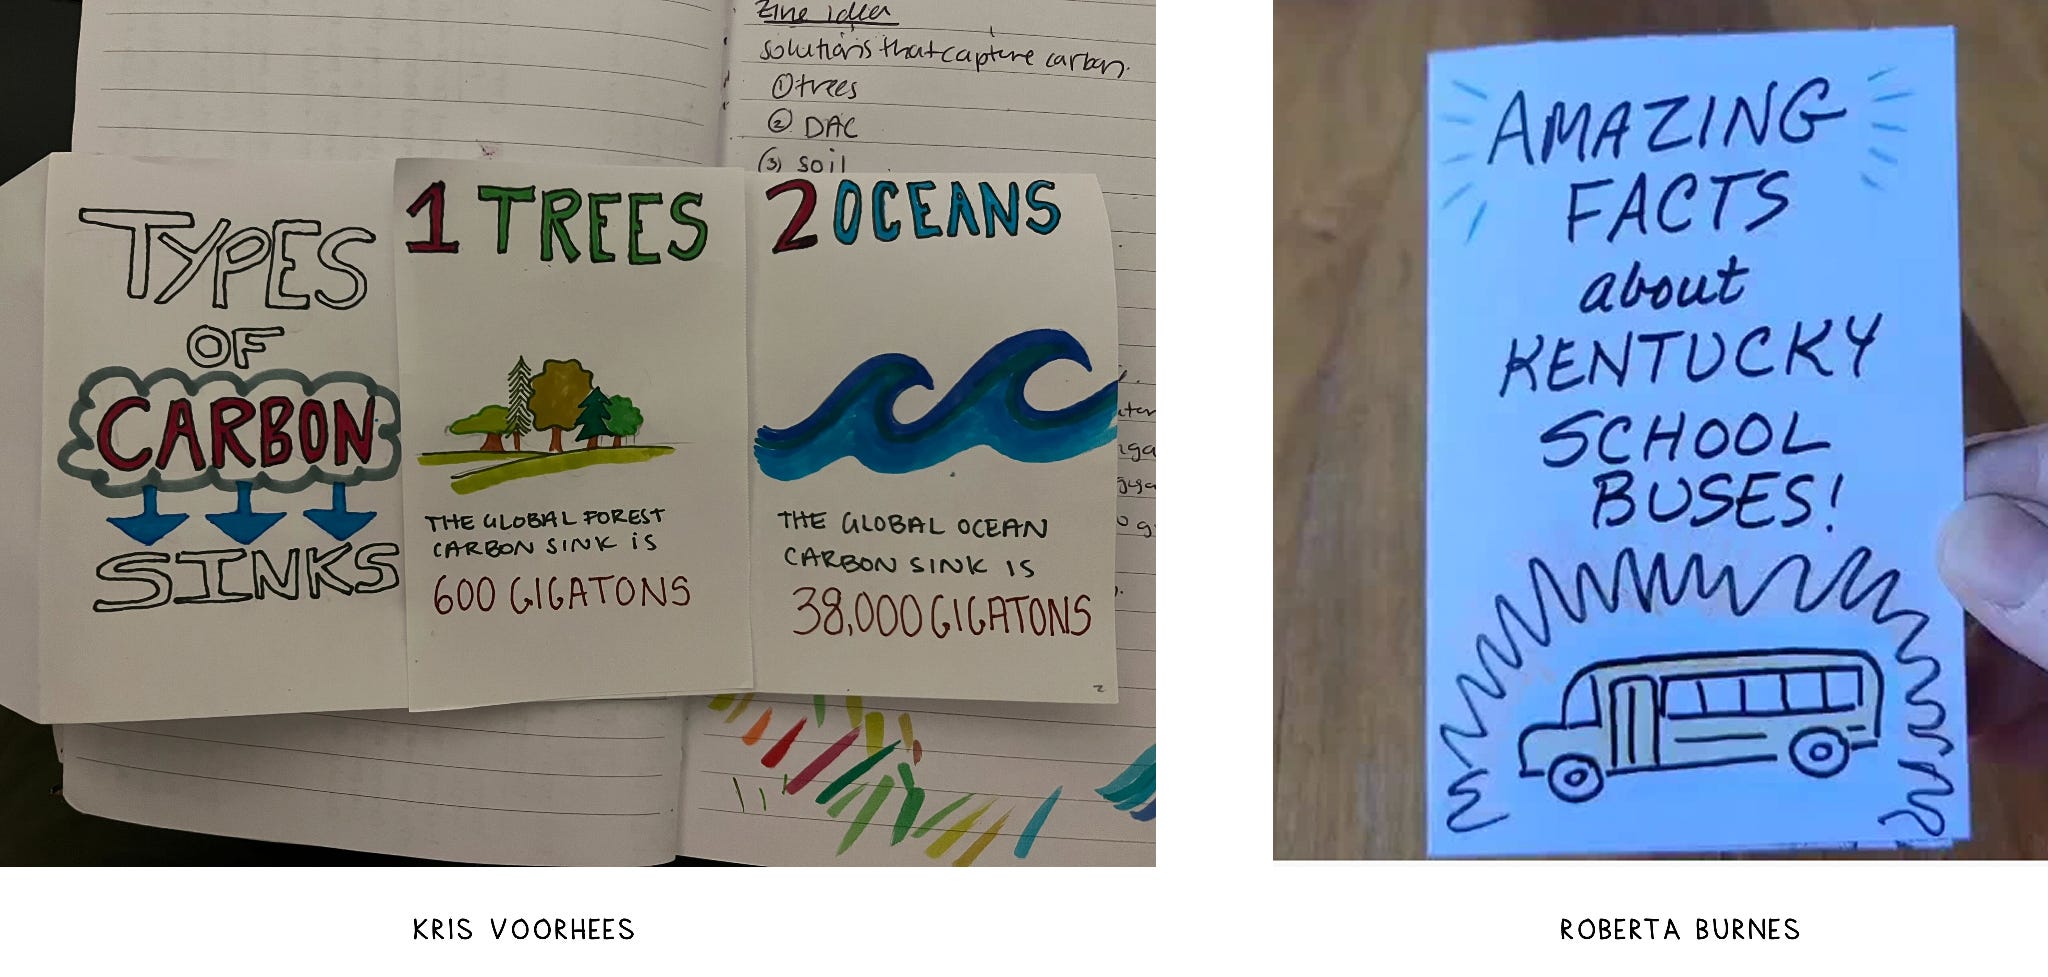 Zine idea
solutions that capture carbon.
① trees
② DAC
(3) soil
TYPES
OF
CARBON
SINKS
1 TREES
THE GLOBAL FOREST
CARBON SINK IS
600 GIGATONS
2 OCEANS
THE GLOBAL OCEAN
CARBON SINK IS
38,000 GIGATONS
2
AMAZING
FACTS
about
KENTUCKY
SCHOOL
BUSES!
KRIS VOORHEES
ROBERTA BURNES